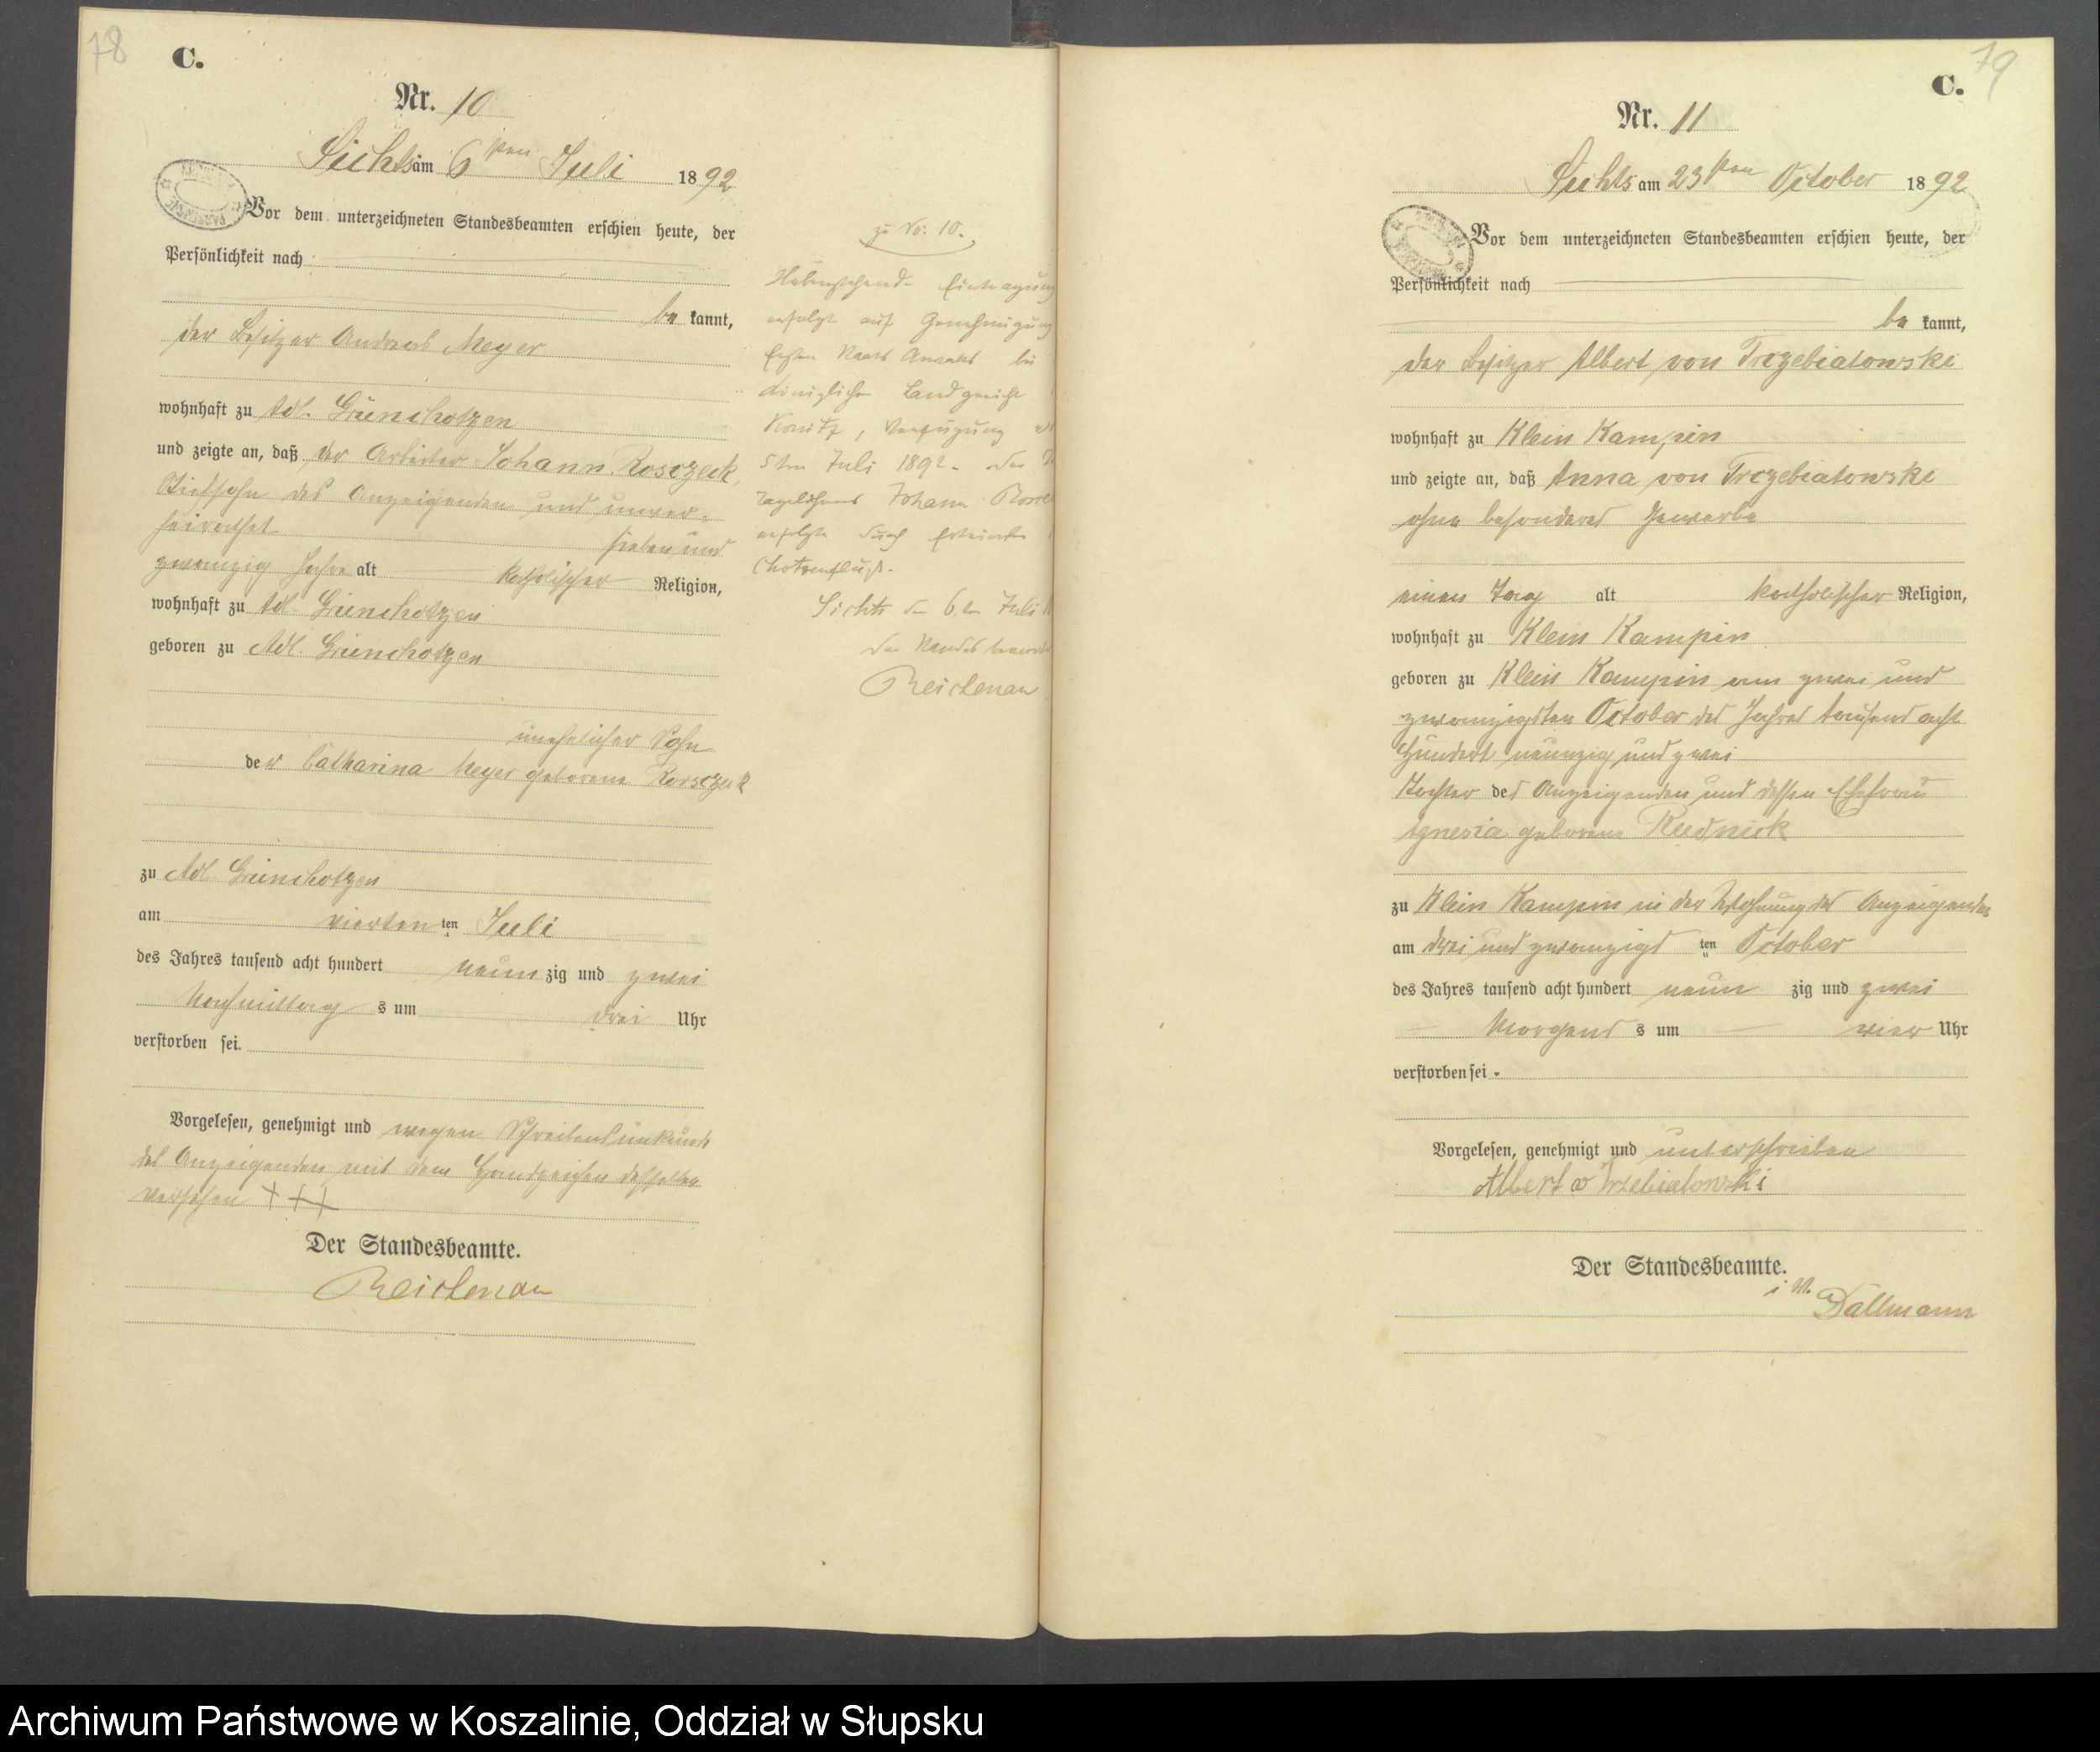 78
C.
Nr. 10
Lichts am 6ten Juli 1892
Vor dem unterzeichneten Standesbeamten erschien heute, der
Persönlichkeit nach
be kannt,
der Besitzer Andreas Meyer
wohnhaft zu Adl. Grünchotzen
und zeigte an, daß der Arbeiter Johann Rosczeck,
Stiefsohn des Anzeigenden und unver-
heirathet sieben und
zwanzig Jahre alt katholischer Religion,
wohnhaft zu Adl. Grünchotzen
geboren zu Adl. Grünchotzen
unehelicher Sohn
der Catharina Meyer geborene
zu Adl. Grünchotzen
am vierten ten Juli
des Jahres tausend acht hundert neun zig und zwei
Nachmittag s um drei Uhr
verstorben sei.
Vorgelesen, genehmigt und wegen Schreibensunkunde
des Anzeigenden mit dem Handzeichen desselben
versehen +++
Der Standesbeamte.
Reichenau
zu No: 10.
Nebenstehende Eintragung
erfolgt auf Genehmigung
Ersten Staats Anwalts bei
Königlichen Landgericht
Konitz, Verfügung
5ten Juli 1892. Der
Tagelöhners Johann
erfolgte durch Ertrinken
Chotzenfluß.
Lichts d 6ten Juli
Der Standesbeamte
Reichenau
79
C.
Nr. 11
Lichts am 23ten October 1892
Vor dem unterzeichneten Standesbeamten erschien heute, der
Persönlichkeit nach
be kannt,
der Besitzer Albert von Trczebiatowski
wohnhaft zu Klein Kampin
und zeigte an, daß Anna von Trczebiatowski
ohne besonderes Gewerbe
einen Tag alt katholischer Religion,
wohnhaft zu Klein Kampin
geboren zu Klein Kampin am zwei und
zwanzigsten October des Jahres tausend acht
hundert neunzig und zwei
Tochter des Anzeigenden und dessen Ehefrau
Agnesia geborene Rudnick
zu Klein Kampin in der Wohnung des Anzeigenden
am drei und zwanzigs ten October
des Jahres tausend acht hundert neun zig und zwei
Morgens s um vier Uhr
verstorben sei.
Vorgelesen, genehmigt und unterschrieben
Albert v Trzebiatowski
Der Standesbeamte.
i. V. Dallmann
Archiwum Państwowe w Koszalinie, Oddział w Słupsku